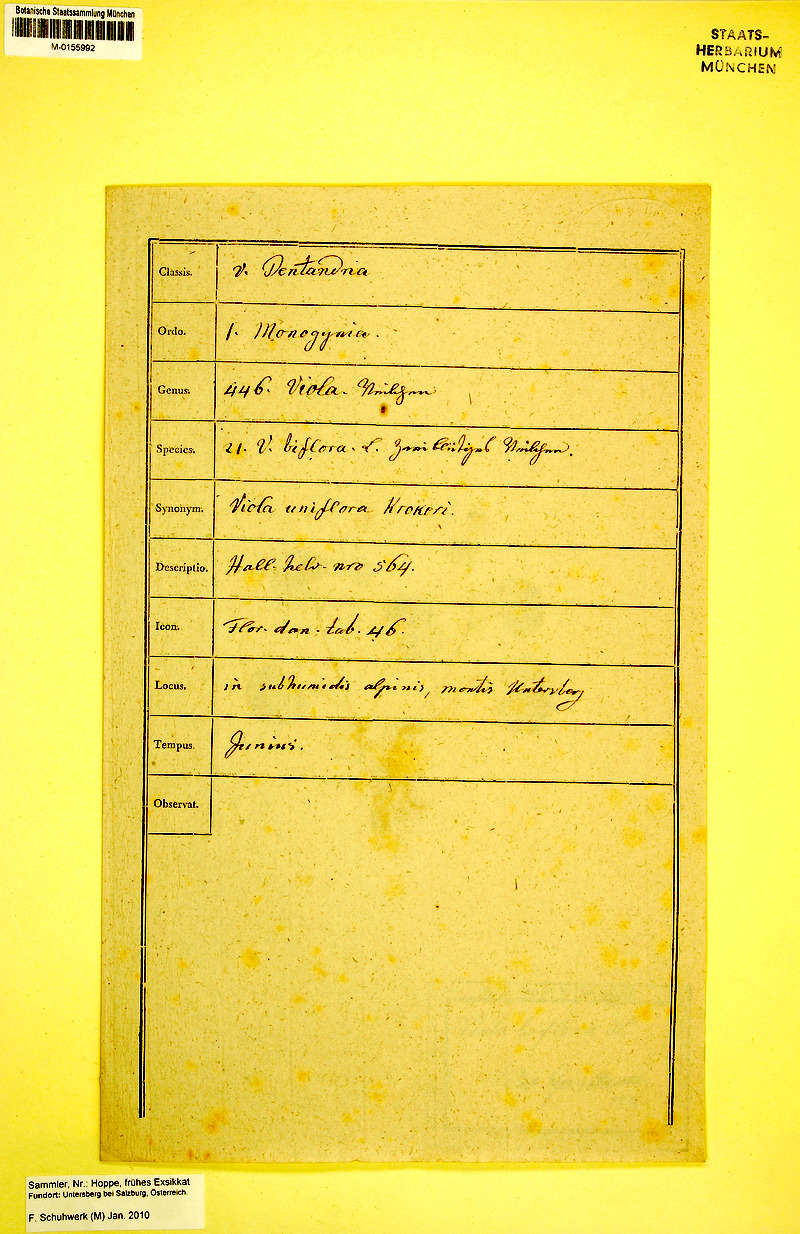 Botanische Staatssammlung München
M-0155992
STAATS-
HERBARIUM
MÜNCHEN
Classis. V. Pentandria
Ordo. 1. Monogynia.
Genus. 446. Viola. Veilchen
Species. 21. V. biflora. L. Zweiblütiges Veilchen.
Synonym. Viola uniflora Krokeri.
Descriptio. Hall. helv. nro 564.
Icon. Flor. dan. tab. 46.
Locus. in subhumidis alpinis, montis Untersberg
Tempus. Junius.
Observat.
Sammler, Nr.: Hoppe, frühes Exsikkat
Fundort: Untersberg bei Salzburg, Österreich.
F. Schuhwerk (M) Jan. 2010